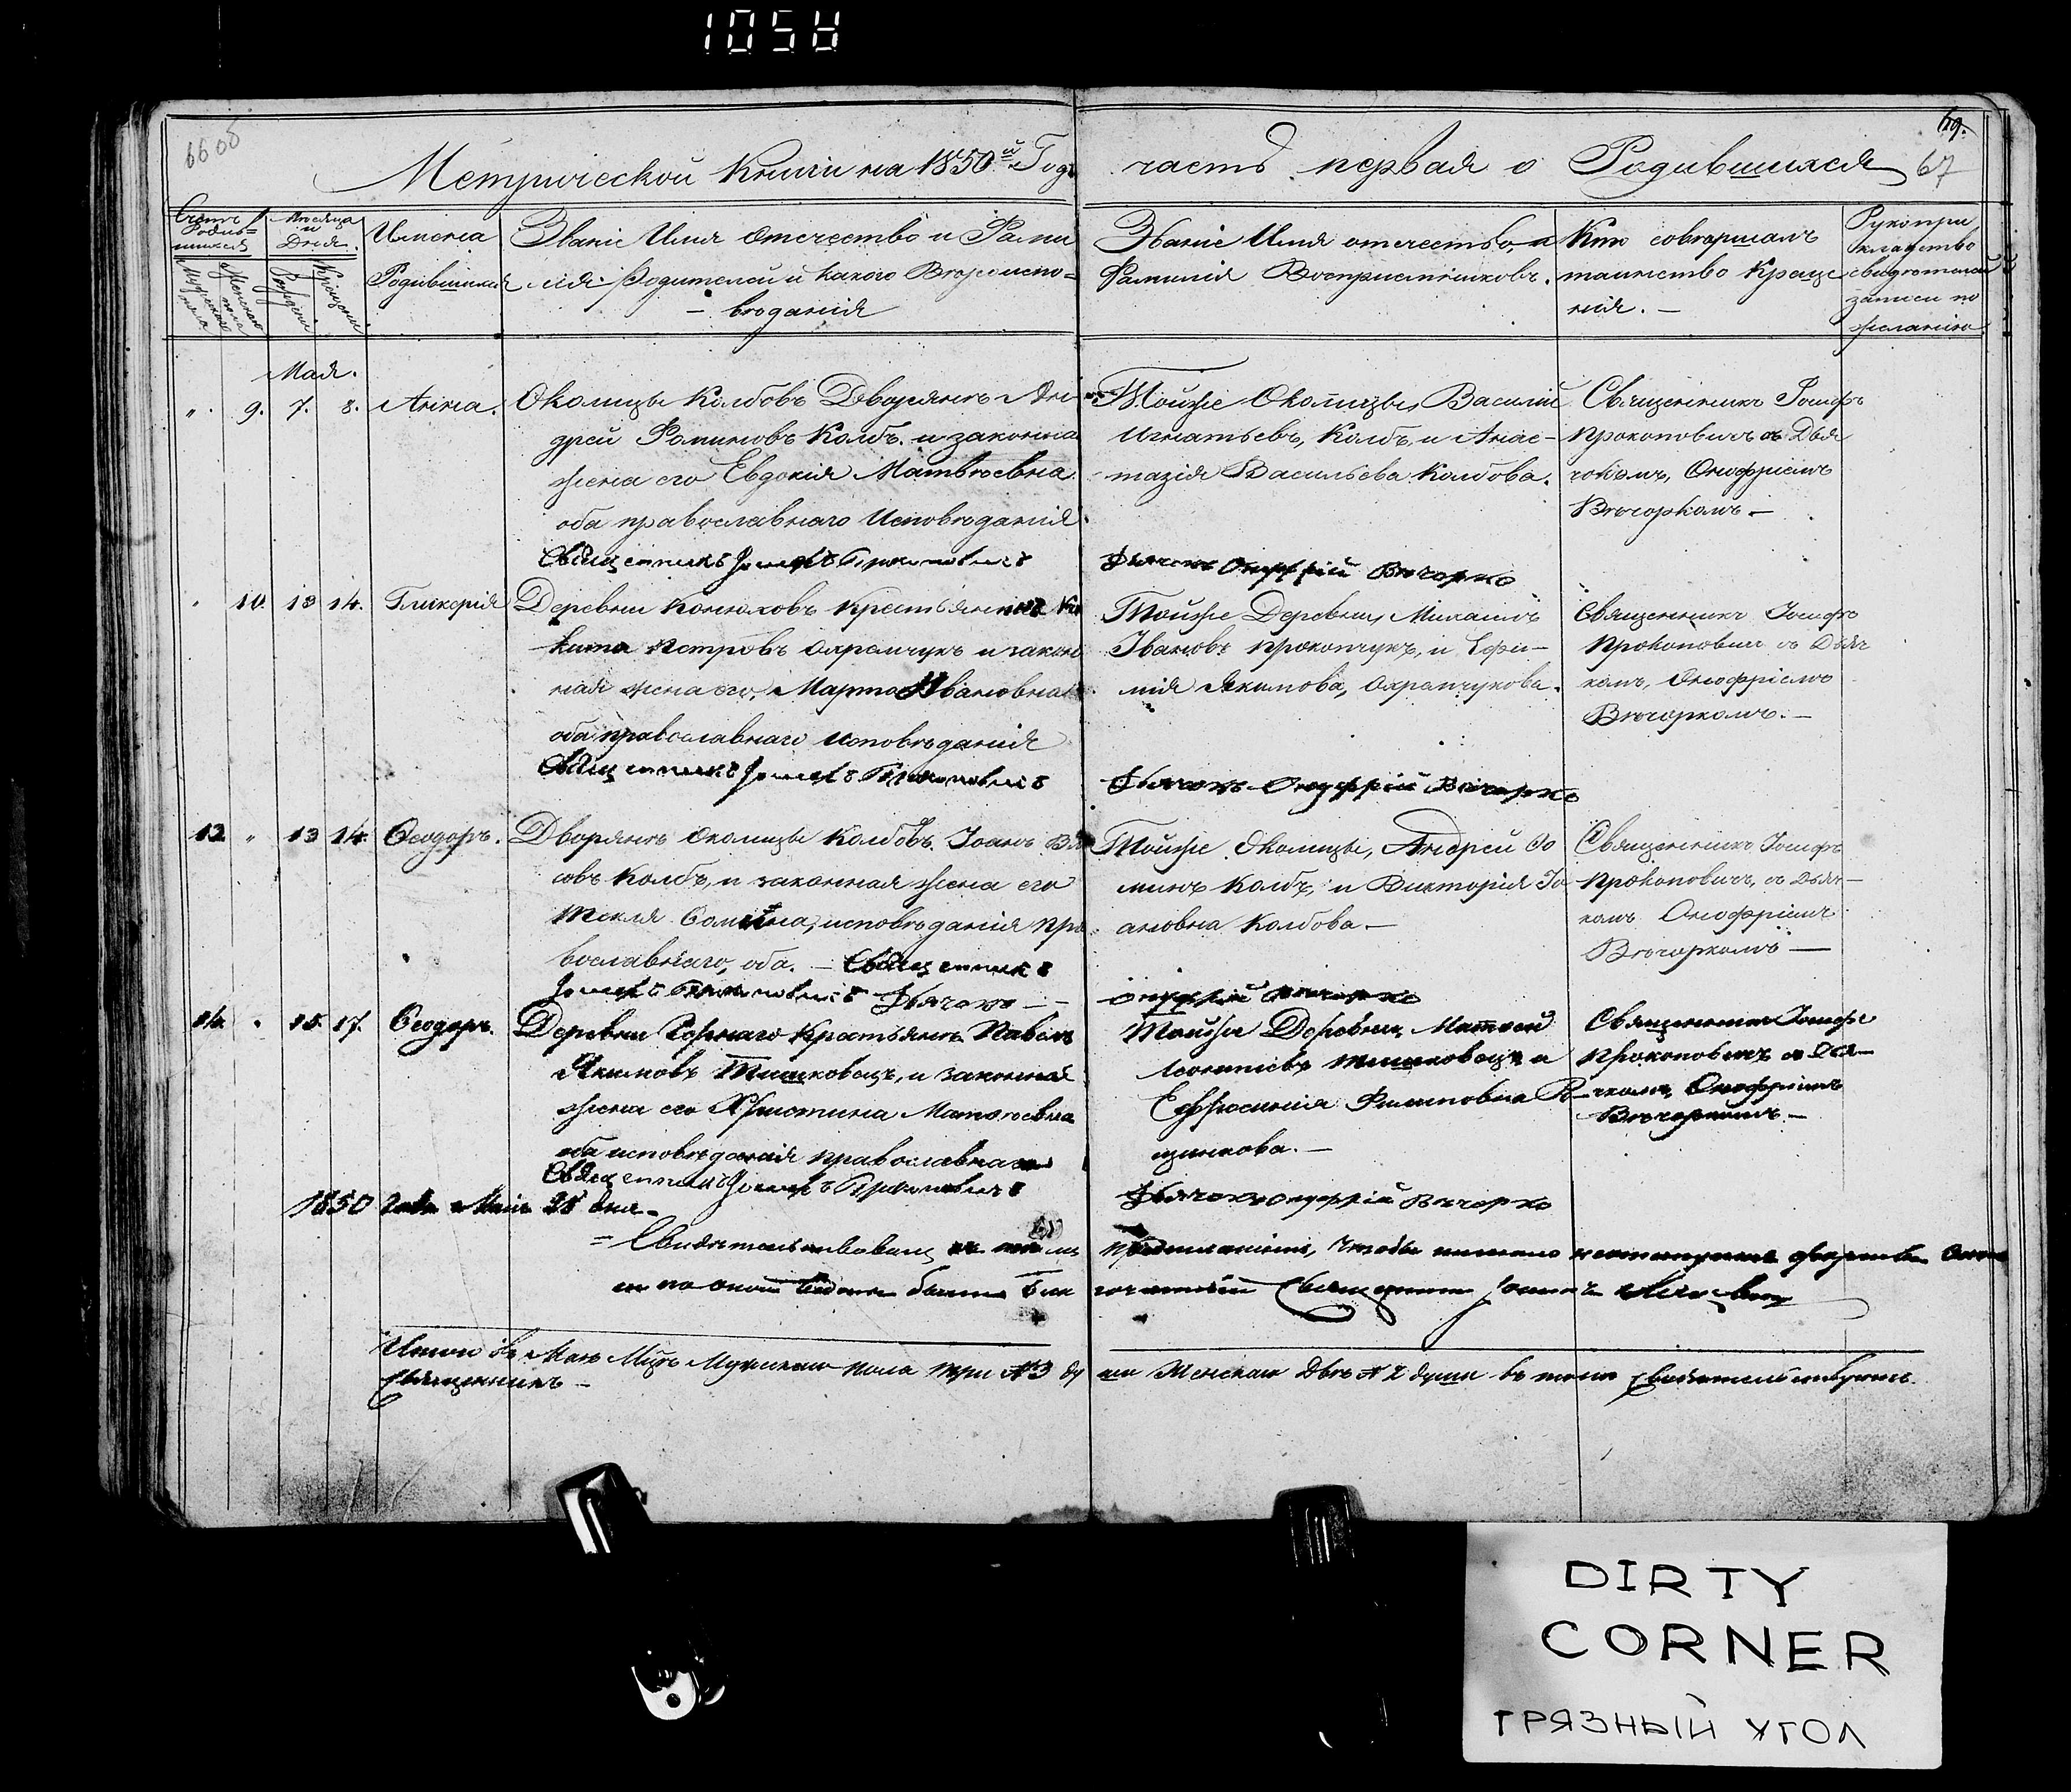 1058
6606
69.
67
Метрической Книги на 1850й Годъ часть первая о Родившихся
Счетъ Родив=шихся
Мужеска пола
Женска пола
Месяца и Дня.
Рожденія
Крещенія
Имена Родившихся
Званіе Имя отечество и Фами
лія Родителей и какого Вероиспо=
– веданія
Званіе Имя отечество, и
Фамилія Воспріемниковъ.
Кто совершалъ
таинство Креще
нія. –
Рукопри
кладство
свидетелей
записи по
желанію
Мая.
„ 9. 7. 8. Анна. Околицы Колбовъ Дворянинъ Ан
дрей Фоминовъ Колбъ и законна
жена его Евдокія Матвѣевна
оба православнаго Исповѣданія.
Священникъ Іосифъ Прокоповичъ
Тойже Околицы, Василій
Игнатьевъ, Колбъ и Анас–
тазія Васильева Колбова.
Дьячокъ Онуфрій Вечорко
Священникъ Іосифъ
Прокоповичъ съ Дья
чкомъ, Онофріемъ
Вѣчоркомъ. –
„ 10. 13 14. Гликерія Деревни Конюховъ Крестьянинъ Ни
кита Петровъ Охремчукъ и закон
ная жена его, Марта Ивановна
оба православнаго Исповѣданія
Священникъ Іосифъ Прокоповичъ
Тойже Деревни, Михаилъ
Ивановъ Прокопчукъ, и Ефи–
мія Якимова, Охремчукова.
Дьячокъ Онуфрій Вечорко
Священникъ Іосифъ
Прокоповичъ съ Дьяч
комъ, Онофріемъ
Вѣчоркомъ. –
12 „ 13 14. Ѳеодоръ. Дворянинъ Околицы Колбовъ Іоанъ
совъ Колбъ, и законная жена его
Текля исповѣданія пра
вославнаго, оба. – Священникъ
Іосифъ Прокоповичъ Дьячокъ –
Тойже Околицы, Андрей Ѳо
минъ Колбъ, и Викторія Іо
ановна Колбова. –
Онуфрій Вечорко
Священникъ Іосифъ
Прокоповичъ, съ Дьяч–
комъ Онофріемъ
Вѣчоркомъ –
„ 15. 17. Ѳеодоръ. Деревни Крестьянинъ Павелъ
Якимовъ Тишковецъ, и законная
жена его Христина Матвѣевна
оба исповѣданія православнаго
Священникъ Іосифъ Прокоповичъ
Тойже Деревни, Матвей
Тишковецъ и
Ефросинія Филиповна
щикова. –
Дьячокъ Онуфрій Вечорко
Священникъ Іосифъ
Прокоповичъ съ Дья–
чкомъ, Онофріемъ
Вѣчоркомъ. –
1850 года Маія 28 дня.
= Свидетельствовалъ
чтобы
Священникъ
Итого въ Маѣ Мцѣ Мужеска пола три № 3 ду ши Женска Двѣ № 2 души въ томъ свидетельствуемъ.
Священникъ –
DIRTY
CORNER
ГРЯЗНЫЙ УГОЛ